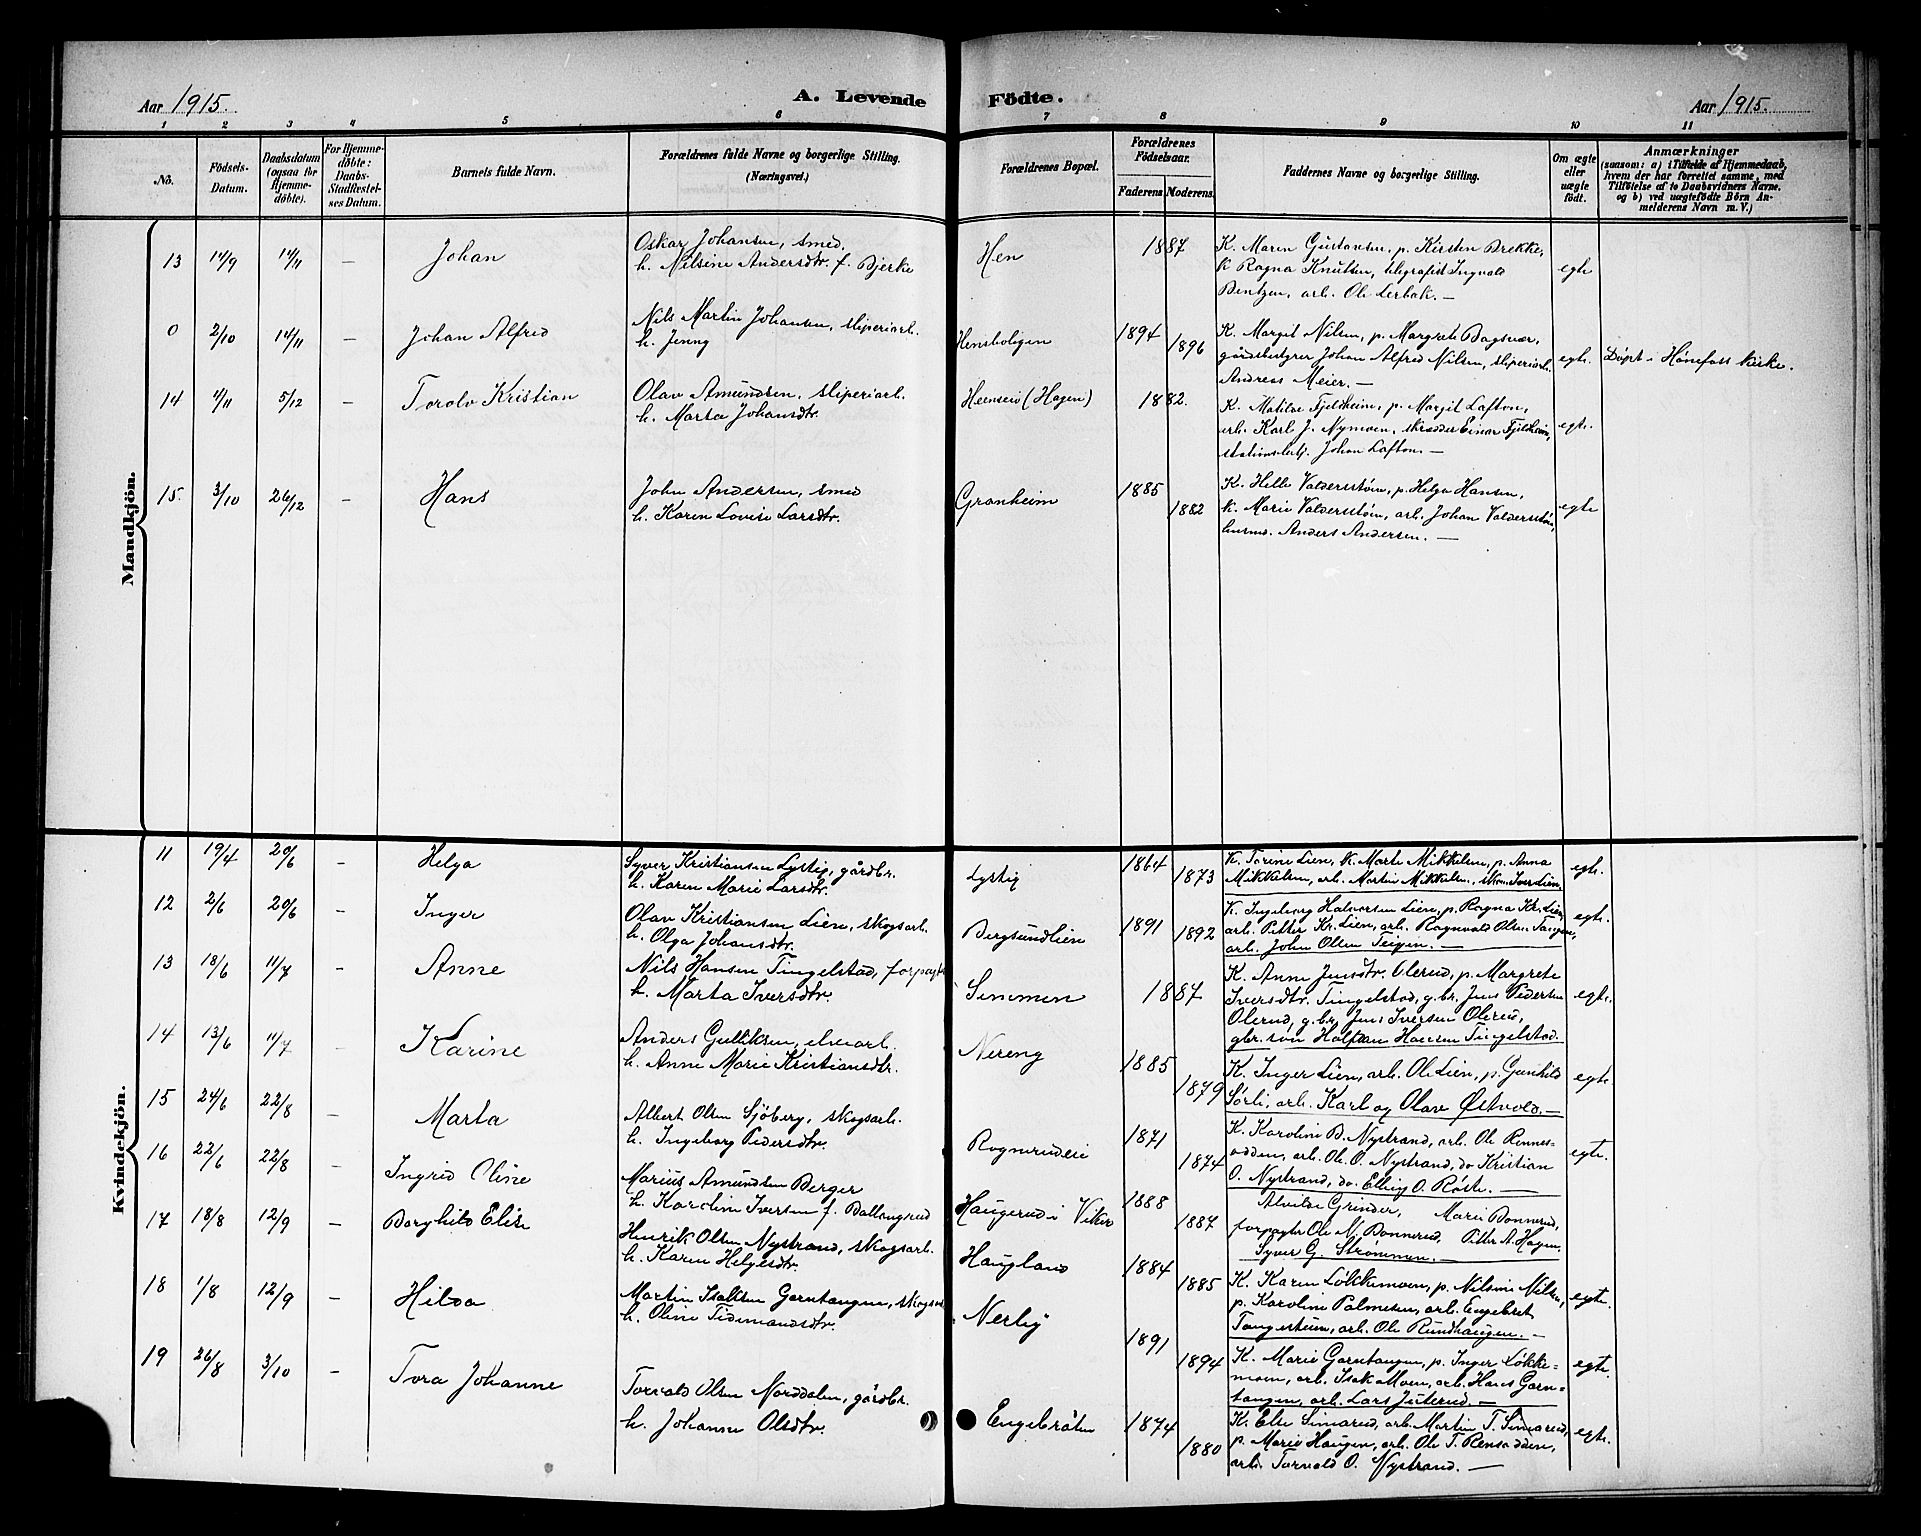 Aar 1915.
A. Levende Födte.
Aar 1915.
1 2 3 4 5 6 7 8 9 10 11
No.
Födsels-Datum.
Daabsdatum (ogsaa for Hjemmedöbte).
For Hjemmedöbte: Daabs-Stadfæstelses Datum.
Barnets fulde Navn.
Forældrenes fulde Navne og borgerlige Stilling. (Næringsvei.)
Forældrenes Bopæl.
Forældrenes Födselsaar.
Faderens. Moderens.
Faddernes Navne og borgerlige Stilling.
Om ægte eller uægte födt.
Anmærkninger
(saasom: a) i Tilfælde af Hjemmedaab, hvem der har forrettet samme, med Tilföielse af to Daabsvidners Navne. og b) ved uægtefödte Börn Anmelderens Navn m. V.)
Mandkjön.
13 14/9 14/11 — Johan
Oskar Johansen, smed,
h. Nilsine Andersdtr. f. Bjerke
Hen 1887
K. Maren Gustavsen, p. Kirsten Brekke,
k Ragna Knutsen, telegrafist Ingvald
Bentzen, arb. Ole Lerbak. —
egte
0 2/10 14/11 — Johan Alfred
Nils Martin Johansen, sliperiarb.
h. Jenny
Hensboligen 1894 1896
K. Margit Nilsen, p. Margrete Bagsvær,
gårdsbestyrer Johan Alfred Nilsen, sliperiarb.
Andreas Meier. —
egte.
Döpt i Hönefoss kirke.
14 4/11 5/12 — Torolv Kristian
Olav Amundsen, sliperiarb.
h. Marta Johansdtr.
Heenseie (Hagen) 1882.
K. Matilde Fjeldheim, p. Margit Lafton,
arb. Karl J. Nymoen, skrædder Einar Fjeldheim,
stationsbetj. Johan Lafton. —
egte.
15. 3/10 26/12 — Hans
John Andersen, smed
h. Karen Lovise Larsdtr.
Granheim 1885 1882
K. Helle Valdersstöen, p. Helga Hansen,
k. Marie Valdersstöen, arb. Johan Valdersstöen,
husm. Anders Andersen. —
egte
Kvindekjön.
11 19/4 20/6 — Helga
Syver Kristiansen Lystig, gårdbr.
h. Karen Marie Larsdtr.
Lystig 1864 1873
K. Torine Lien, k. Marte Mikkelsen, p. Anna
Mikkelsen, arb. Martin Mikkelsen, Iver Lien.
egte.
12 2/6 20/6 — Inger
Olav Kristiansen Lien, skogsarb.
h. Olga Johansdtr.
Bergsundlien 1891 1892
K. Ingeborg Halvorsen Lien, p. Ragna Kr. Lien,
arb. Petter Kr. Lien, arb. Ragnvald Olsen Tangen,
arb. John Olsen Teigen. —
egte.
13 18/6 11/7 — Anne
Nils Hansen Tingelstad, forpagter
h. Marta Iversdtr.
Semmen 1887
K. Anne Jensdtr. Olerud, p. Margrete
Iversdtr. Tingelstad, g.br. Jens Pedersen
Olerud, g.br. Jens Iversen Olerud,
gbr.søn Halfdan Hansen Tingelstad.
egte.
14 13/6 11/7 — Karine
Anders Gulliksen, elvearb.
h. Anne Marie Kristiansdtr.
Nereng 1885 1879
K. Inger Lien, arb. Ole Lien, p. Gunhild
Sørli, arb. Karl og Olav Østvold. —
egte.
15 24/6 22/8 — Marta
Albert Olsen Sjöberg, skogsarb.
h. Ingeborg Pedersdtr.
Rognerudeie 1871 1874
K. Karoline B. Nystrand, arb. Ole Rennesodden, arb. Ole O. Nystrand, do Kristian
O. Nystrand, do. Elling O. Røste. —
egte.
16 22/6 22/8 — Ingrid Oline
Marius Amundsen Berger
h. Karoline Iversen f. Ballangrud
Haugerud i Viker 1888 1887
Alvilde Grinder, Marie Bonnerud,
forpagter Ole N. Bonnerud, Petter A. Hagen,
Syver G. Strømmen. —
17 18/8 12/9 — Borghild Elise
Henrik Olsen Nystrand, skogsarb.
h. Karen Helgesdtr.
Haugland 1884 1885
K. Karen Løkkemoen, p. Nilsine Nilsen,
p. Karoline Palmesen, arb. Engebret
Tangestuen, arb. Ole Rundhaugen. —
egte.
18 1/8 12/9 — Hilda
Martin Isaksen Garntangen, skogsarb.
h. Oline Tidemandsdtr.
Nerby 1891 1894
K. Marie Garntangen, p. Inger Løkke=
moen, arb. Isak Moen, arb. Hans Garn=
tangen, arb. Lars Juterud. —
egte.
19 26/8 3/10 — Tora Johanne
Torvald Olsen Norddalen, gårdbr.
h. Johanne Olsdtr.
Engebråten 1874 1880
K. Else Simarud, arb. Martin T. Simarud,
p. Marie Haugen, arb. Ole T. Rensodden,
arb. Torvald O. Nystrand. —
egte.